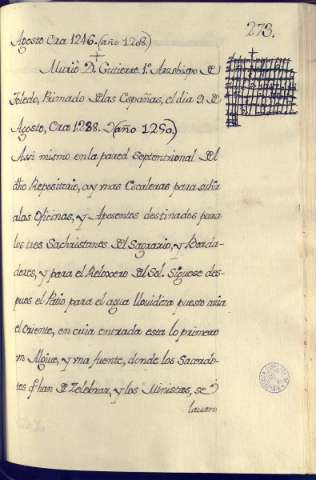 273.
Agosto Era 1246. (año 1208)
Murió D. Gutierre 1º. Arzobispo de
Toledo, Primado de las Españas, el dia 9 de
Agosto, Era 1288. (año 1250)
Assi mismo en la pared Septentrional del
dho Repositario, ay mas Escaleras para subir
a las Oficinas, y Aposentos destinados para
los tres Sachristanes del Sagrario, y Borda-
dores, y para el Reloxero del Sol. Siguese des-
pues el Patio para el agua llovediza puesto acia
el Oriente, en cuia entrada esta lo primero
un Algive, y una fuente, donde los Sacerdo-
tes q̃ han de Zelebrar, y los Ministros, se
lavan